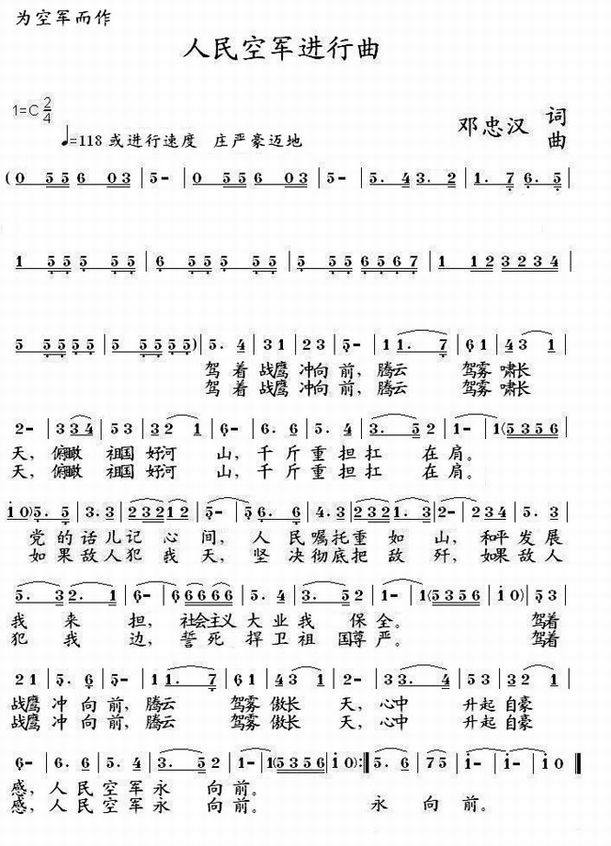 为空军而作
人民空军进行曲
1=C 2/4
♩=118 或进行速度 庄严豪迈地
邓忠汉 词
曲
(0 5 5 6 0 3 | 5 - | 0 5 5 6 0 3 | 5 - | 5 - | 5. 4 3. 2 | 1. 7 6. 5 |
1 5 5 5 5 5 | 6 5 5 5 5 5 | 5 5 5 6 5 6 7 | 1 1 1 2 3 2 3 4 |
5 5 5 5 5 | 5 5 5 5 5) | 5. 4 | 3 1 | 2 3 | 5 - | 1 1. 7 | 6 1 | 4 3 1 |
驾着战鹰冲向前,腾云 驾雾啸长
驾着战鹰冲向前,腾云 驾雾啸长
2 - | 3 3 4 | 5 3 | 3 2 1 | 6 - | 6. 6 | 5. 4 | 3. 5 2 | 1 - | 1 (5 3 5 6 |
天,俯瞰 祖国好河 山,千斤重担扛 在肩。
天,俯瞰 祖国好河 山,千斤重担扛 在肩。
i 0) 5. 5 | 3. 3 | 2 3 2 1 2 | 5 - | 5 6. 6 | 4. 3 | 2 3 2 1. | 2 - | 2 3 4 | 5. 5 |
党的话儿记 心 间, 人 民嘱托重 如 山, 和平发展
如果敌人犯 我 天, 坚 决彻底把 敌 歼, 如果敌人
5. 3 2. 1 | 6 - | 6 6 6 6 6 | 5. 4 | 3. 5 2 | 1 - | 1 (5 3 5 6 | i 0) | 5 3 |
我 来 担, 社会主义 大业我 保全。 驾着
犯 我 边, 誓死 捍卫祖 国尊严。 驾着
2 1 | 5. 6 | 5 - | 1 1. 7 | 6 1 | 4 3 1 | 2 - | 3 3. 4 | 5 3 | 3 2 1 |
战鹰冲向前,腾云 驾雾傲长 天,心中 升起自豪
战鹰冲向前,腾云 驾雾傲长 天,心中 升起自豪
6 - | 6. 6 | 5. 4 | 3. 5 2 | 1 - | 1 (5 3 5 6 | i 0) :| 5. 6 | 7 5 | i - | i - | i 0 ‖
感,人民空军永 向前。
感,人民空军永 向前。 永 向前。